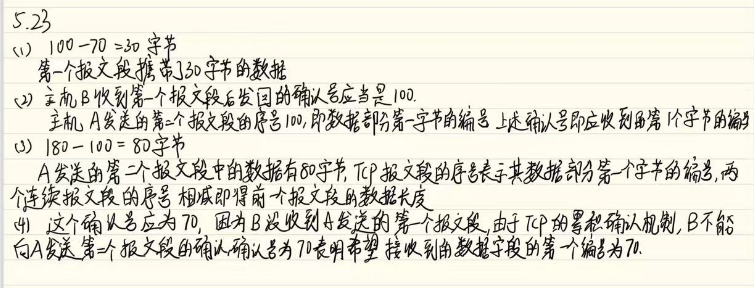 5.23
(1) 100-70=30字节
第一个报文段携带了30字节的数据
(2) 主机B收到第一个报文段后发回的确认号应当是100.
主机A发送的第二个报文段的序号100,即数据部分第一字节的编号 上述确认号即应收到的第1个字节的编号
(3) 180-100=80字节
A发送的第二个报文段中的数据有80字节,TCP报文段的序号表示其数据部分第一个字节的编号,两
个连续报文段的序号相减即得前一个报文段的数据长度
(4) 这个确认号应为70,因为B没收到A发送的第一个报文段,由于TCP的累积确认机制,B不能
向A发送第二个报文段的确认,确认号为70表明希望接收到的数据字段的第一个编号为70.